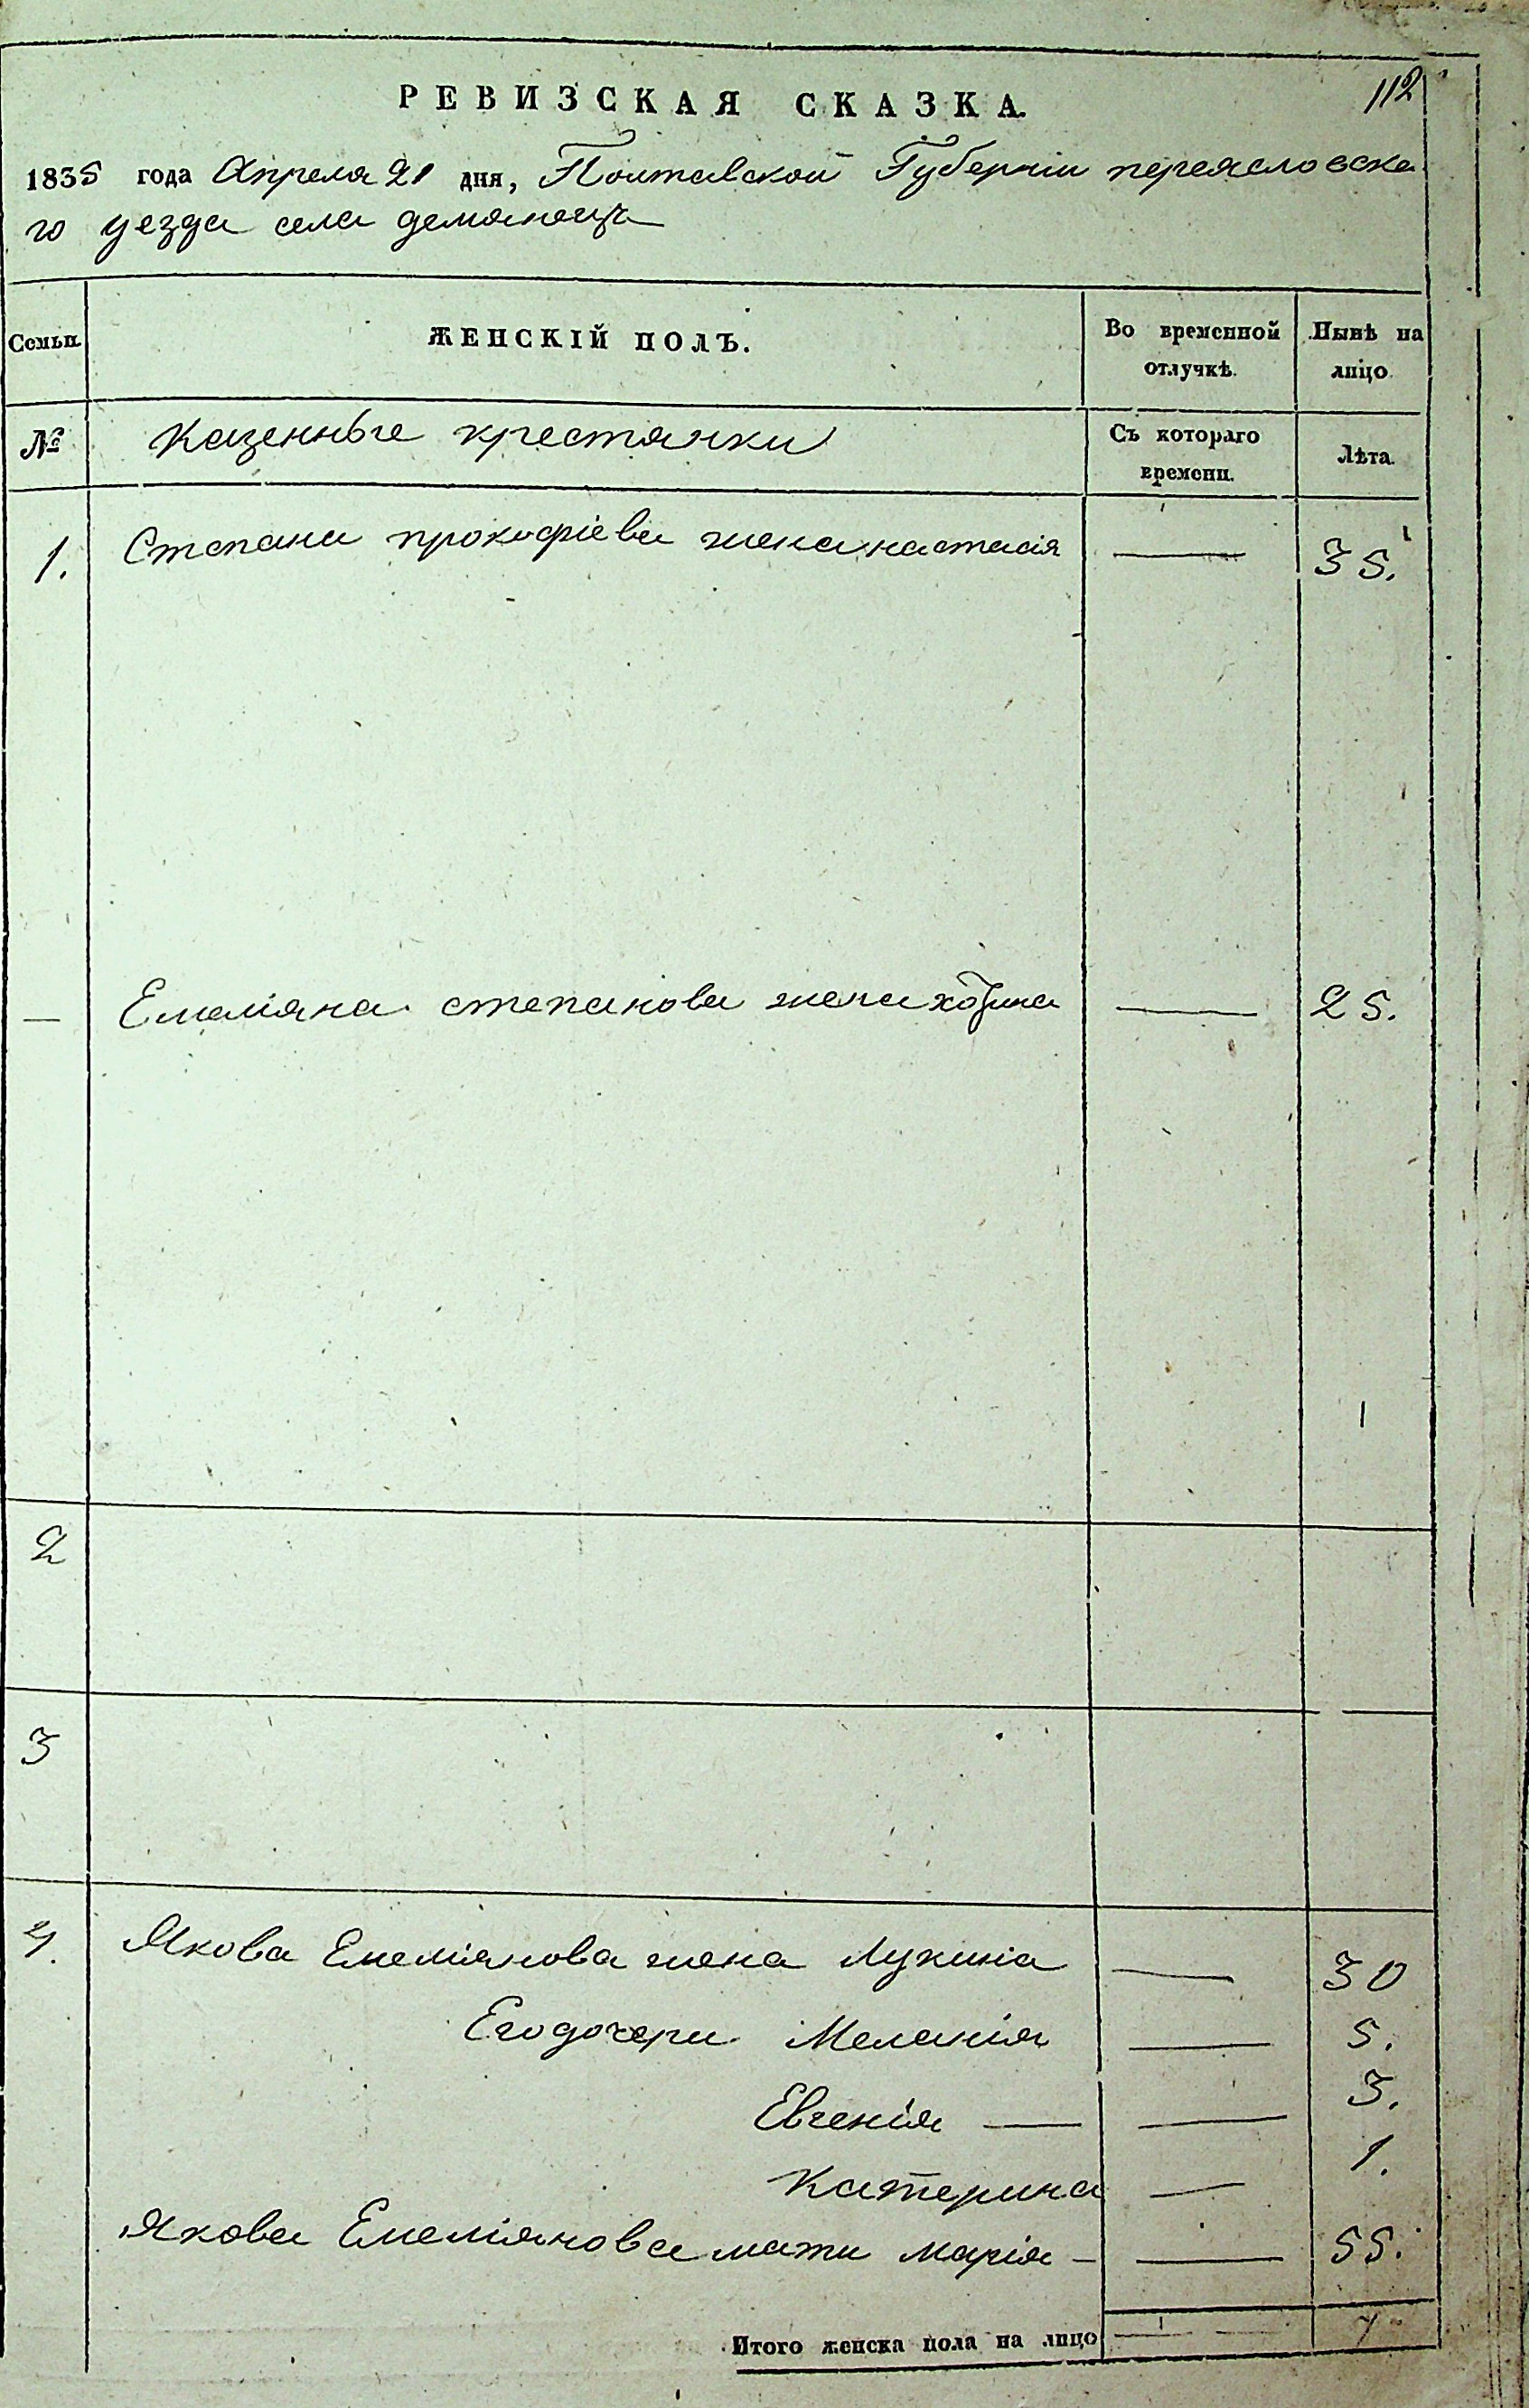 112
РЕВИЗСКАЯ СКАЗКА.
1835 года Апреля 21 дня, Полтавской Губернiи переясловска
го уезда села демянецъ
Семьи. ЖЕНСКІЙ ПОЛЪ. Во временной отлучкѣ. Нынѣ на лицо.
№ Казенные крестянки Съ котораго времени. Лѣта.
1. Степана прокофіева жена настасія — 35.
— Емеліяна степанова жена — 25.
2
3
4. Якова Емеліянова жена Лукиніа — 30
Его дочери Меланія — 5.
Евгенія — — 3.
Катерина — 1.
Якова Емеліянова мати марія — — 55.
Итого женска пола на лицо — — 7